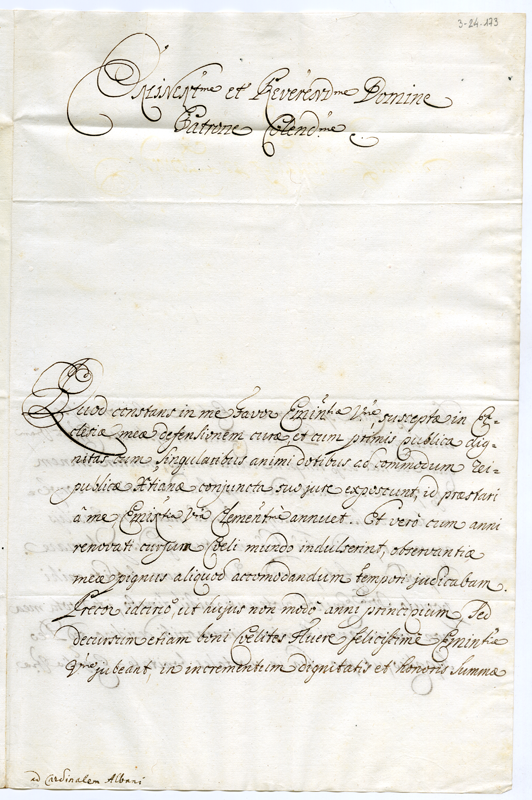 3-24.173
Eminentme et Reverendme Domine
Patrone Colendme
Quod constans in me favor Emintiæ Vræ, susceptæ in Ec-
clesiæ meæ defensionem curæ, et cum primis publica dig-
nitas cum singularibus animi dotibus ad commodum rei-
publicæ Xtianæ conjuncta suo jure exposcunt, id præstari
à me Emintia Vra Clementme annuet. Et verò cum anni
renovati cursum Cœli mundo indulserint, observantiæ
meæ pignus aliquod accomodandum tempori judicabam.
Precor idcircò, ut hujus non modò anni principium, sed
decursum etiam boni Cœlites fluere felicissimè Emintiæ
Vræ jubeant, in incrementum dignitatis et honoris summæ
ad Cardinalem Albani